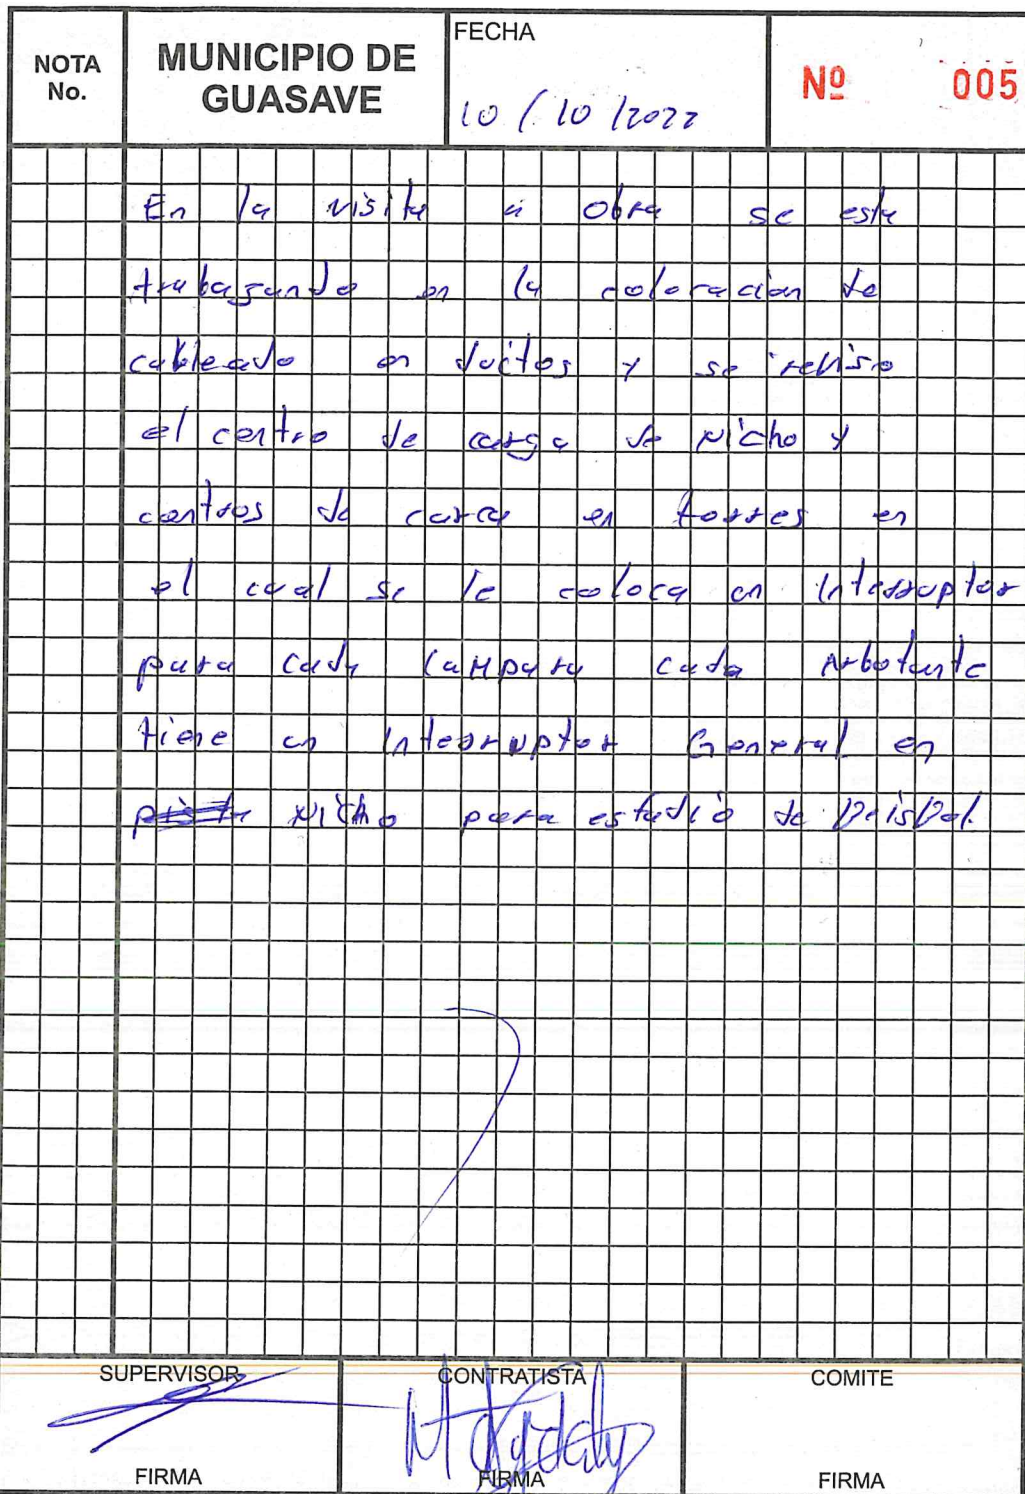 NOTA No.
MUNICIPIO DE GUASAVE
FECHA
10/10/2022
Nº 005
En la visita a obra se esta
trabajando en la colocacion de
cableado en ductos y se reviso
el centro de carga de Nicho y
centros de carca en torres en
el cual se le coloca un Interruptor
para cada lampara cada Arbotante
tiene un Interruptor General en
Nicho para estadio de Beisbol.
SUPERVISOR
CONTRATISTA
COMITE
FIRMA
FIRMA
FIRMA